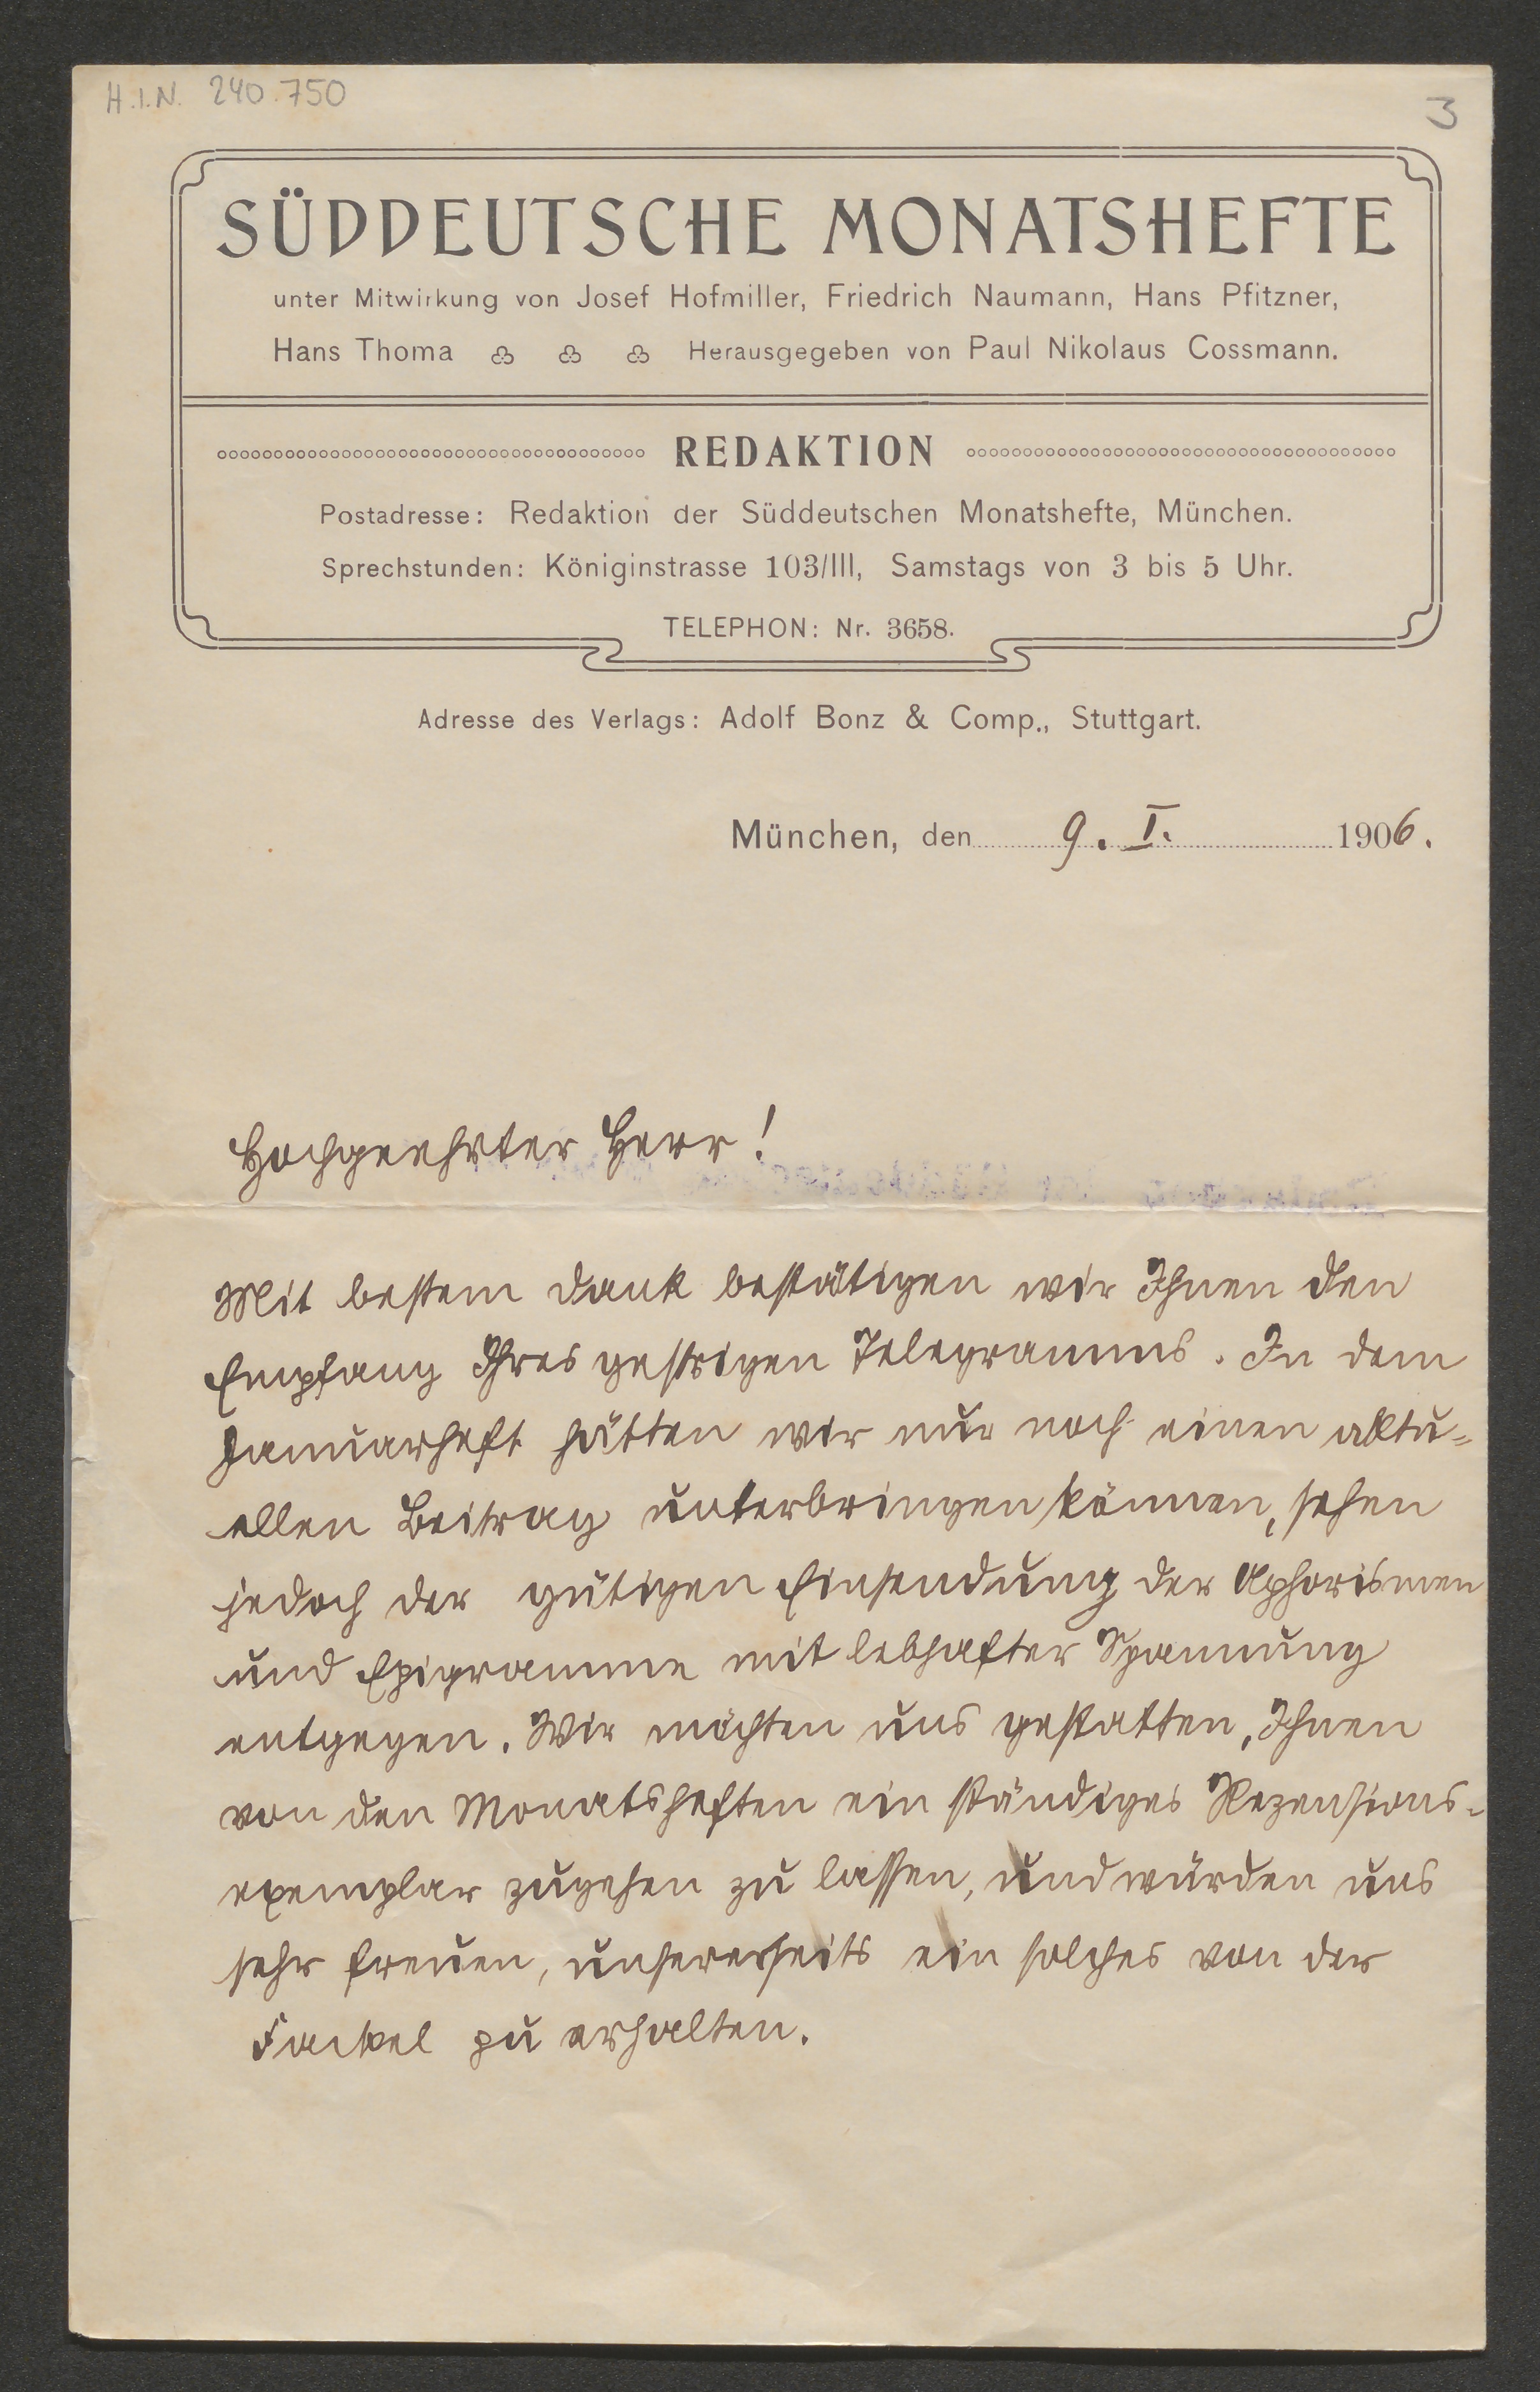 H.I.N. 240.750
3
SÜDDEUTSCHE MONATSHEFTE
unter Mitwirkung von Josef Hofmiller, Friedrich Naumann, Hans Pfitzner,
Hans Thoma Herausgegeben von Paul Nikolaus Cossmann.
REDAKTION
Postadresse: Redaktion der Süddeutschen Monatshefte, München.
Sprechstunden: Königinstrasse 103/III, Samstags von 3 bis 5 Uhr.
TELEPHON: Nr. 3658.
Adresse des Verlags: Adolf Bonz & Comp., Stuttgart.
München, den 9. I. 1906.
Hochgeehrter Herr!
Mit bestem Dank bestätigen wir Ihnen den
Empfang Ihres gestrigen Telegramms. In dem
Januarheft hätten wir nur noch einen aktu=
ellen Beitrag unterbringen können, sehen
jedoch der gütigen Einsendung der Aphorismen
und Epigramme mit lebhafter Spannung
entgegen. Wir möchten uns gestatten, Ihnen
von den Monatsheften ein ständiges Rezensions=
exemplar zugehen zu lassen, und würden uns
sehr freuen, unsererseits ein solches von der
Fackel zu erhalten.